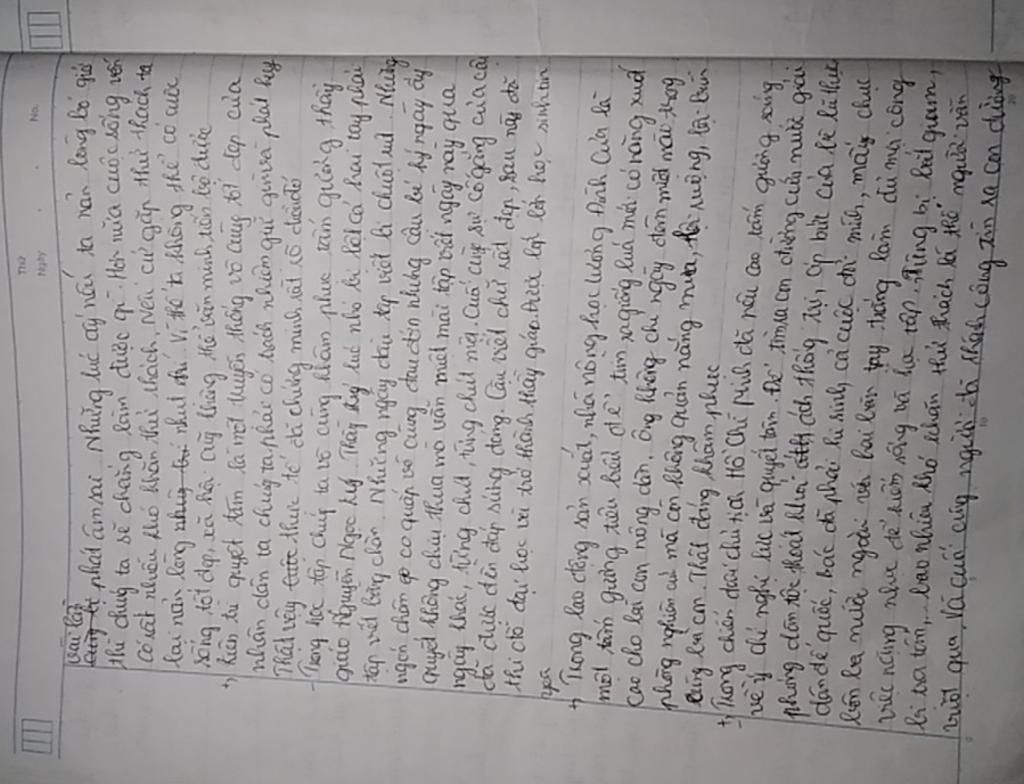 Thứ
Ngày
No.
vài lần phát âm sai. Những lúc ấy nếu ta nản lòng bỏ giở
thì chúng ta sẽ chẳng làm được gì. Hơn nữa cuộc sống vốn
có rất nhiều khó khăn thử thách. Nếu cứ gặp thử thách ta
lại nản lòng nhụt chí. Vì thế ta không thể có cuộc
sống tốt đẹp, xã hội cũng không thể văn minh, tiến bộ được
+) Kiên trì quyết tâm là một truyền thống vô cùng tốt đẹp của
nhân dân ta chúng ta phải có trách nhiệm giữ gìn và phát huy
Thật vậy thực tế đã chứng minh rất rõ điều đó
- Trong học tập chúng ta vô cùng khâm phục tấn gương thầy
giáo Nguyễn Ngọc Ký. Thầy Ký lúc nhỏ bị liệt cả hai tay phải
tập viết bằng chân. Những ngày đầu tập viết bị chuột rút. Những
ngón chân co quắp vô cùng đau đớn nhưng cậu bé ký ngày ấy
quyết không chịu thua nó vẫn miệt mài tập viết ngày này qua
ngày khác, từng chút, từng chút một. Cuối cùng sự cố gắng của cậu
đã được đền đáp xứng đáng. Cậu viết chữ rất đẹp, sau này đã
thi đỗ đại học và trở thành thầy giáo của lớp lớp học sinh thân
yêu
+) Trong lao động sản xuất, nhà nông học Lương Định Của là
một tấm gương tiêu biểu để tìm ra giống lúa mới có năng xuất
cao cho bà con nông dân. ông không chỉ ngày đêm miệt mài trong
phòng nghiên cứu mà còn không quản nắng mưa, lội ruộng, lội bùn
cùng bà con. Thật đáng khâm phục
+) Trong chiến đấu chủ tịch Hồ Chí Minh đã nêu cao tấm gương sáng
về ý chí nghị lực và quyết tâm. Để tìm ra con đường cứu nước giải
phóng dân tộc thoát khỏi ách thống trị, áp bức của bè lũ thực
dân đế quốc, bác đã phải hi sinh cả cuộc đời mình, mấy chục
bôn ba nước ngoài với hai bàn tay trắng làm đủ mọi công
việc nặng nhọc để kiếm sống và học tập. Từng bị bắt giam,
bị tra tấn,... bao nhiêu khó khăn thử thách là thế người vẫn
vượt qua. Và cuối cùng người đã thành công tìm ra con đường